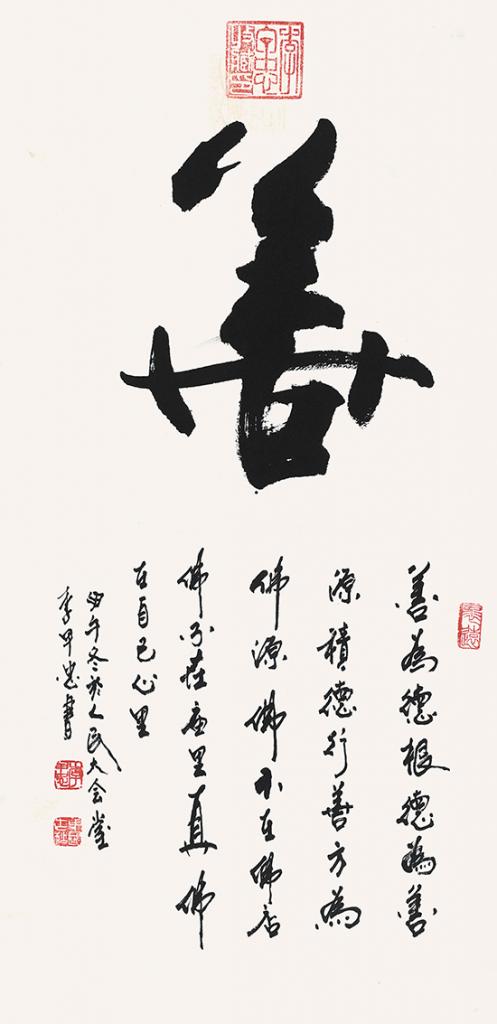 善
善為德根德為善
源積德行善方為
佛源佛不在佛店
佛不在庙里真佛
在自己心里
甲午冬於人民大会堂
李忠書